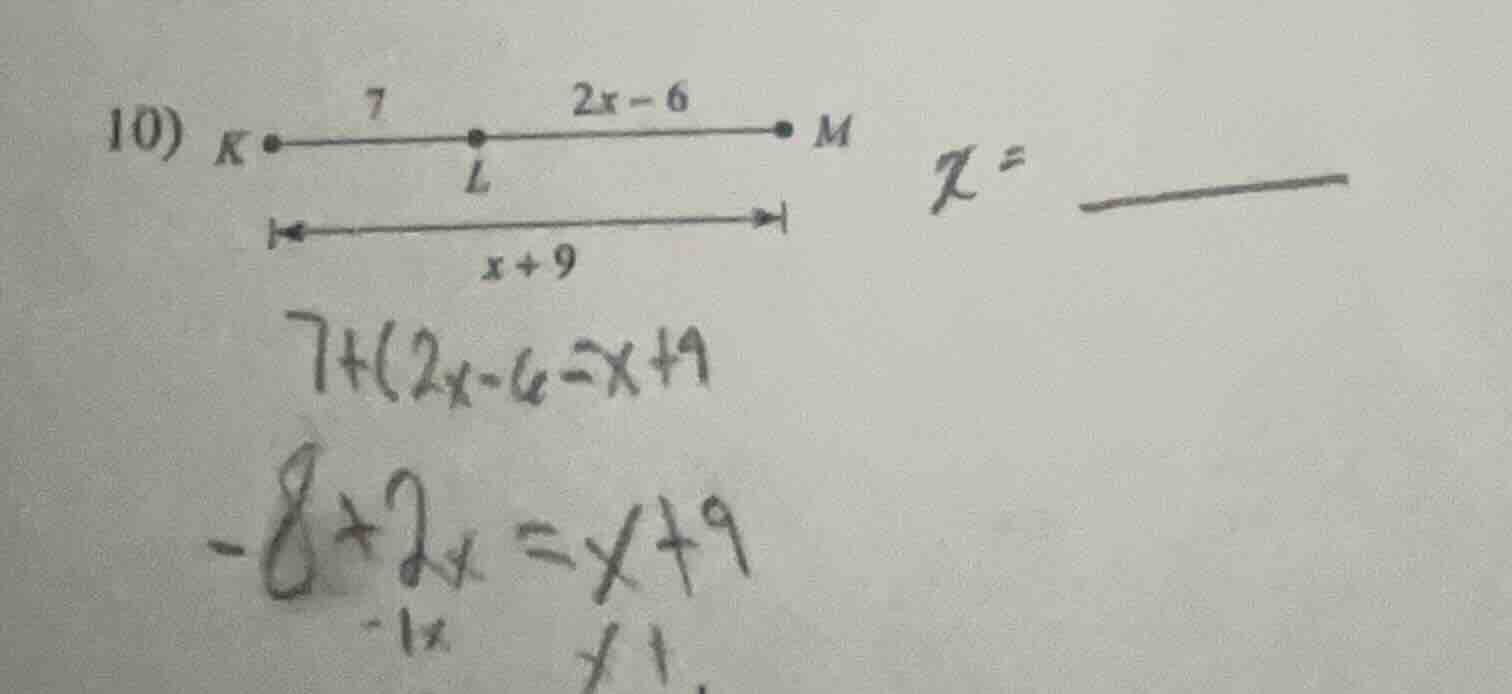 10) K 7 L 2x - 6 M
x + 9
x = 
7+(2x-6=x+9
-8+2x=x+9
-1x